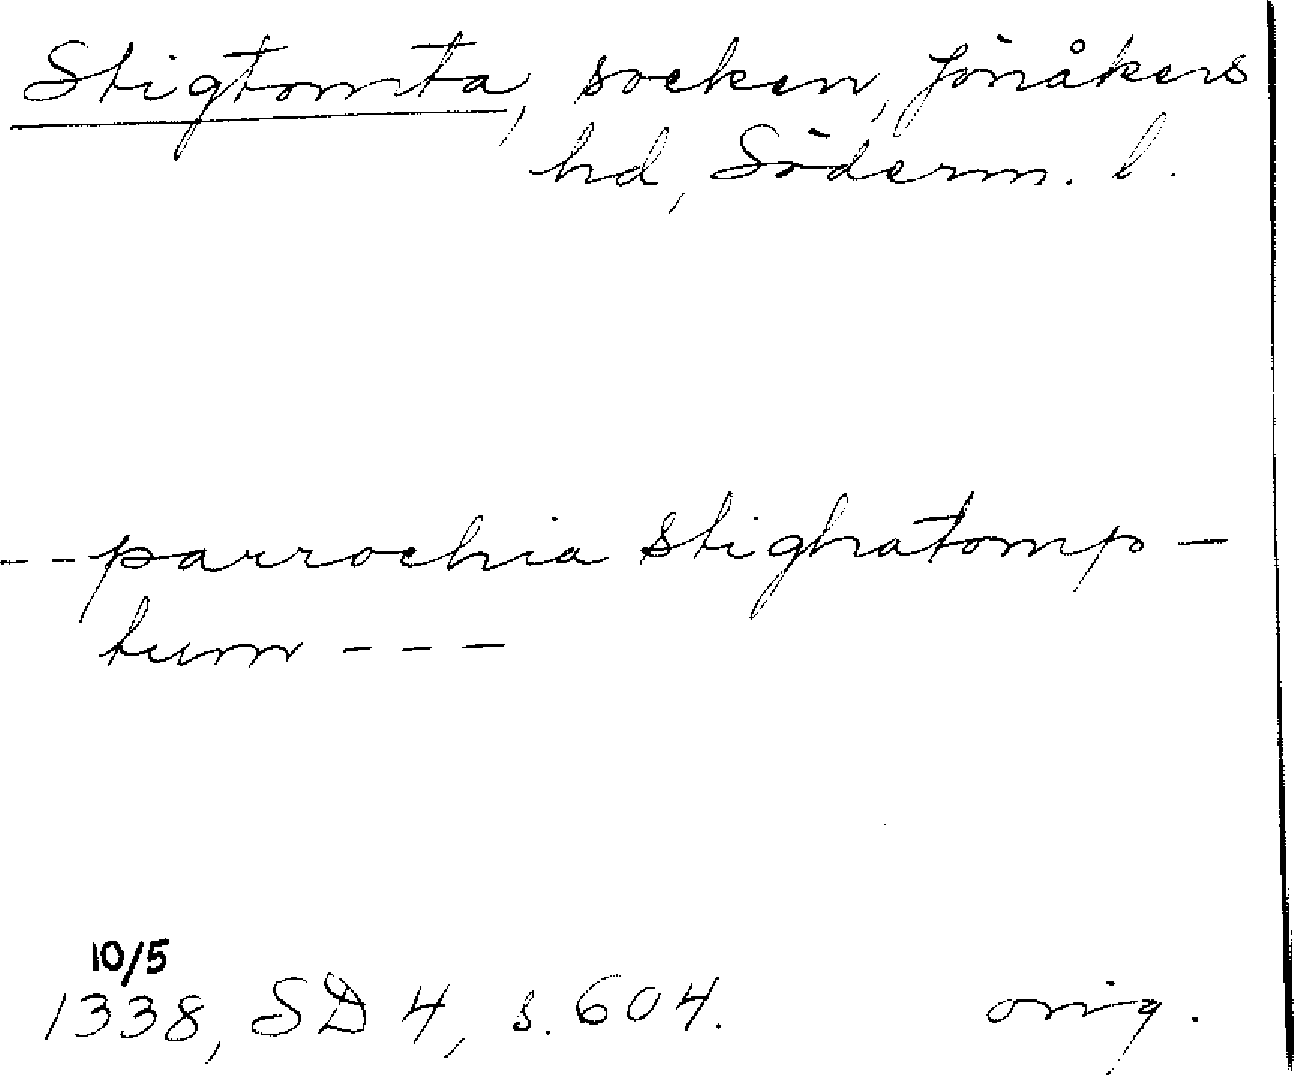 Stigtomta, socken, Jönåkers
hd, Söderm. l.
--parrochia Stighatomp-
tum---
10/5
1338, SD 4, s. 604. orig.